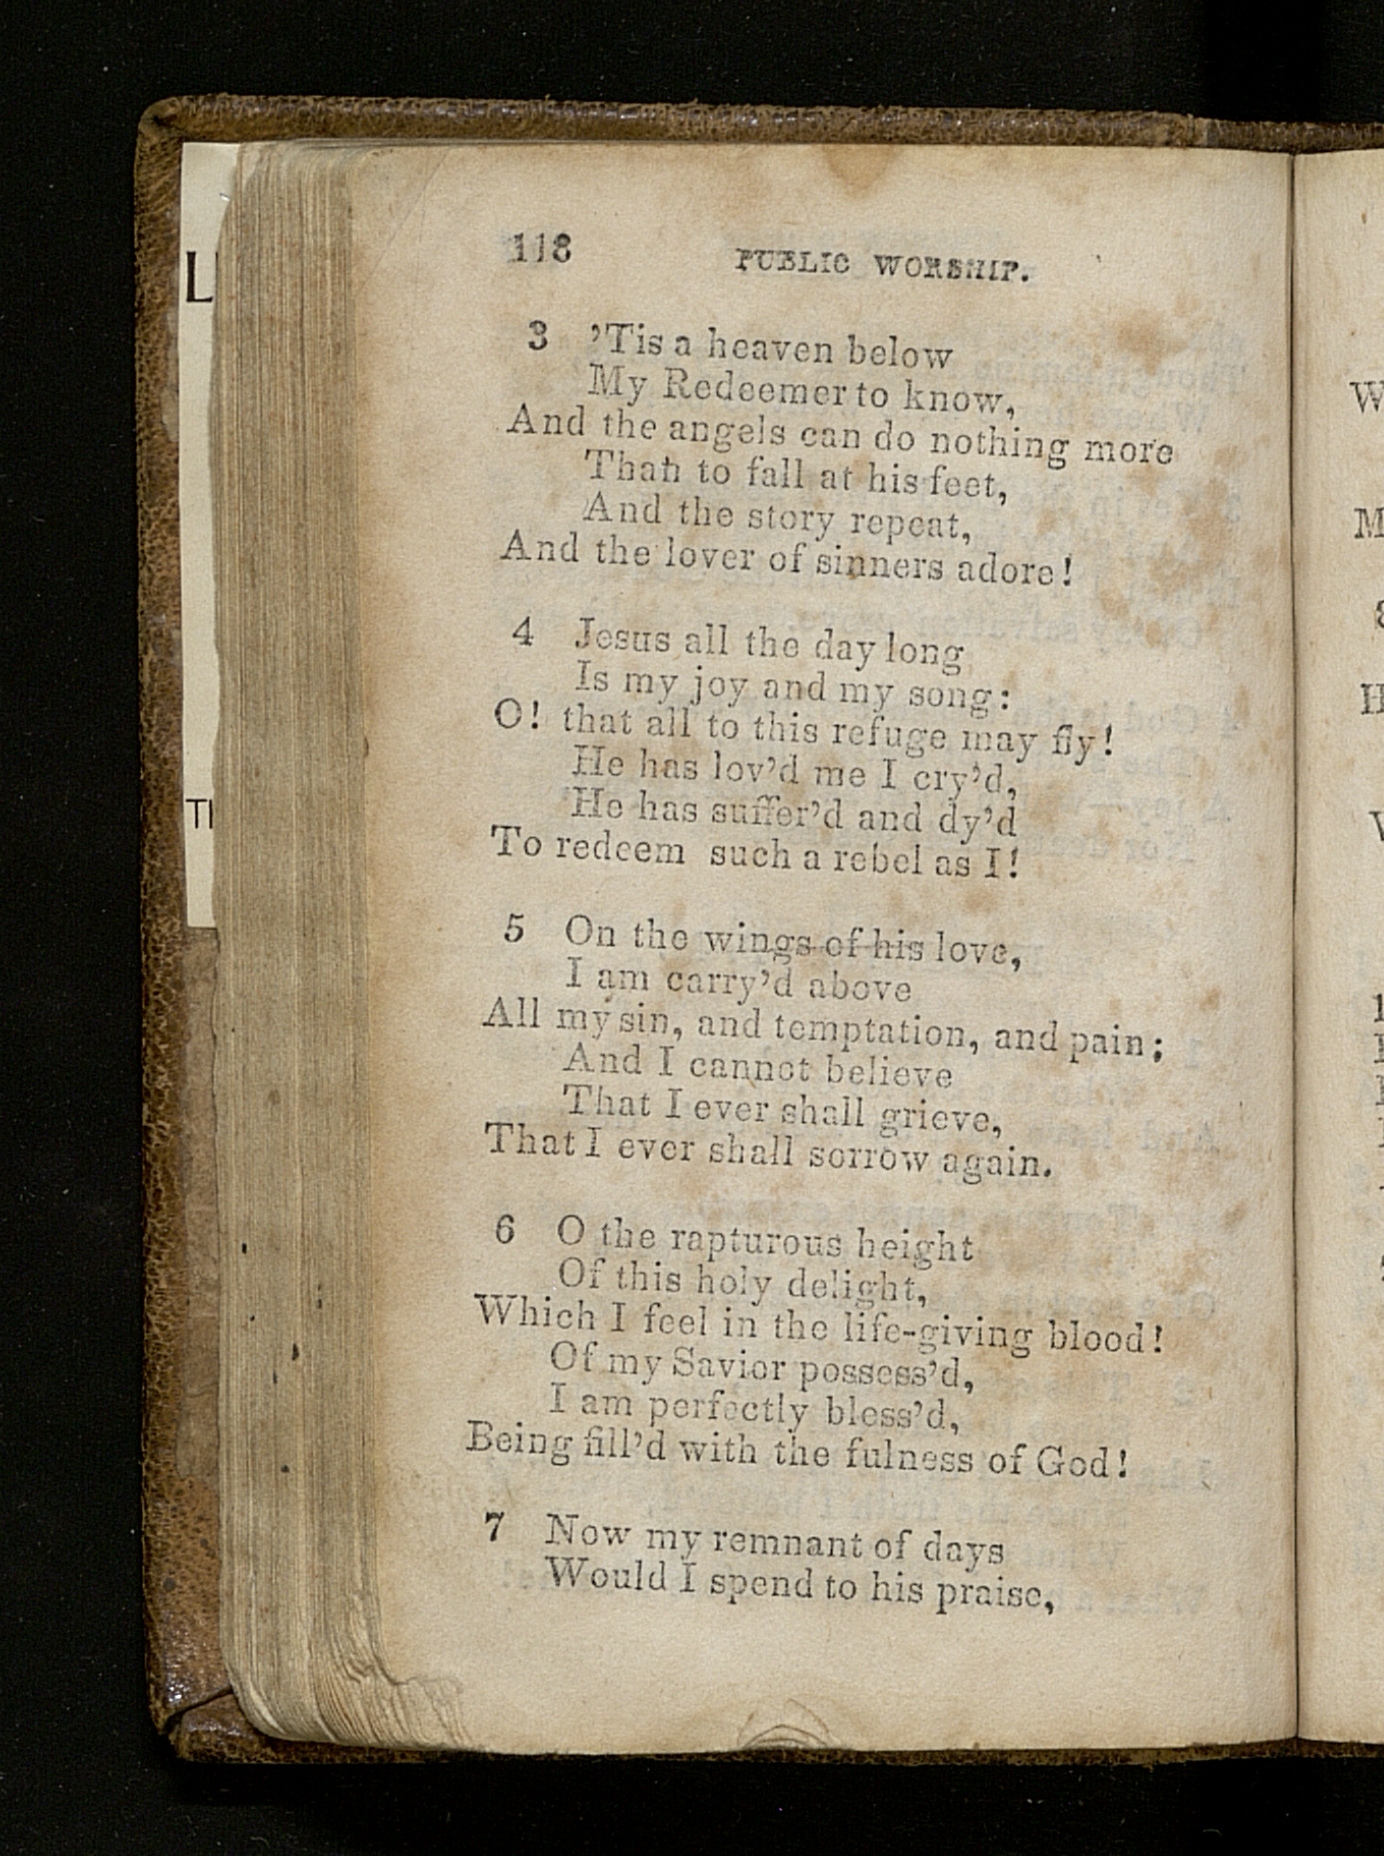 118 PUBLIC WORSHIP.
3 ’Tis a heaven below
My Redeemer to know,
And the angels can do nothing more
Than to fall at his feet,
And the story repeat,
And the lover of sinners adore!
4 Jesus all the day long
Is my joy and my song:
O! that all to this refuge may fly!
He has lov’d me I cry’d,
He has suffer’d and dy’d
To redeem such a rebel as I!
5 On the wings of his love,
I am carry’d above
All my sin, and temptation, and pain;
And I cannot believe
That I ever shall grieve,
That I ever shall sorrow again.
6 O the rapturous height
Of this holy delight,
Which I feel in the life-giving blood!
Of my Savior possess’d,
I am perfectly bless’d,
Being fill’d with the fulness of God!
7 Now my remnant of days
Would I spend to his praise,